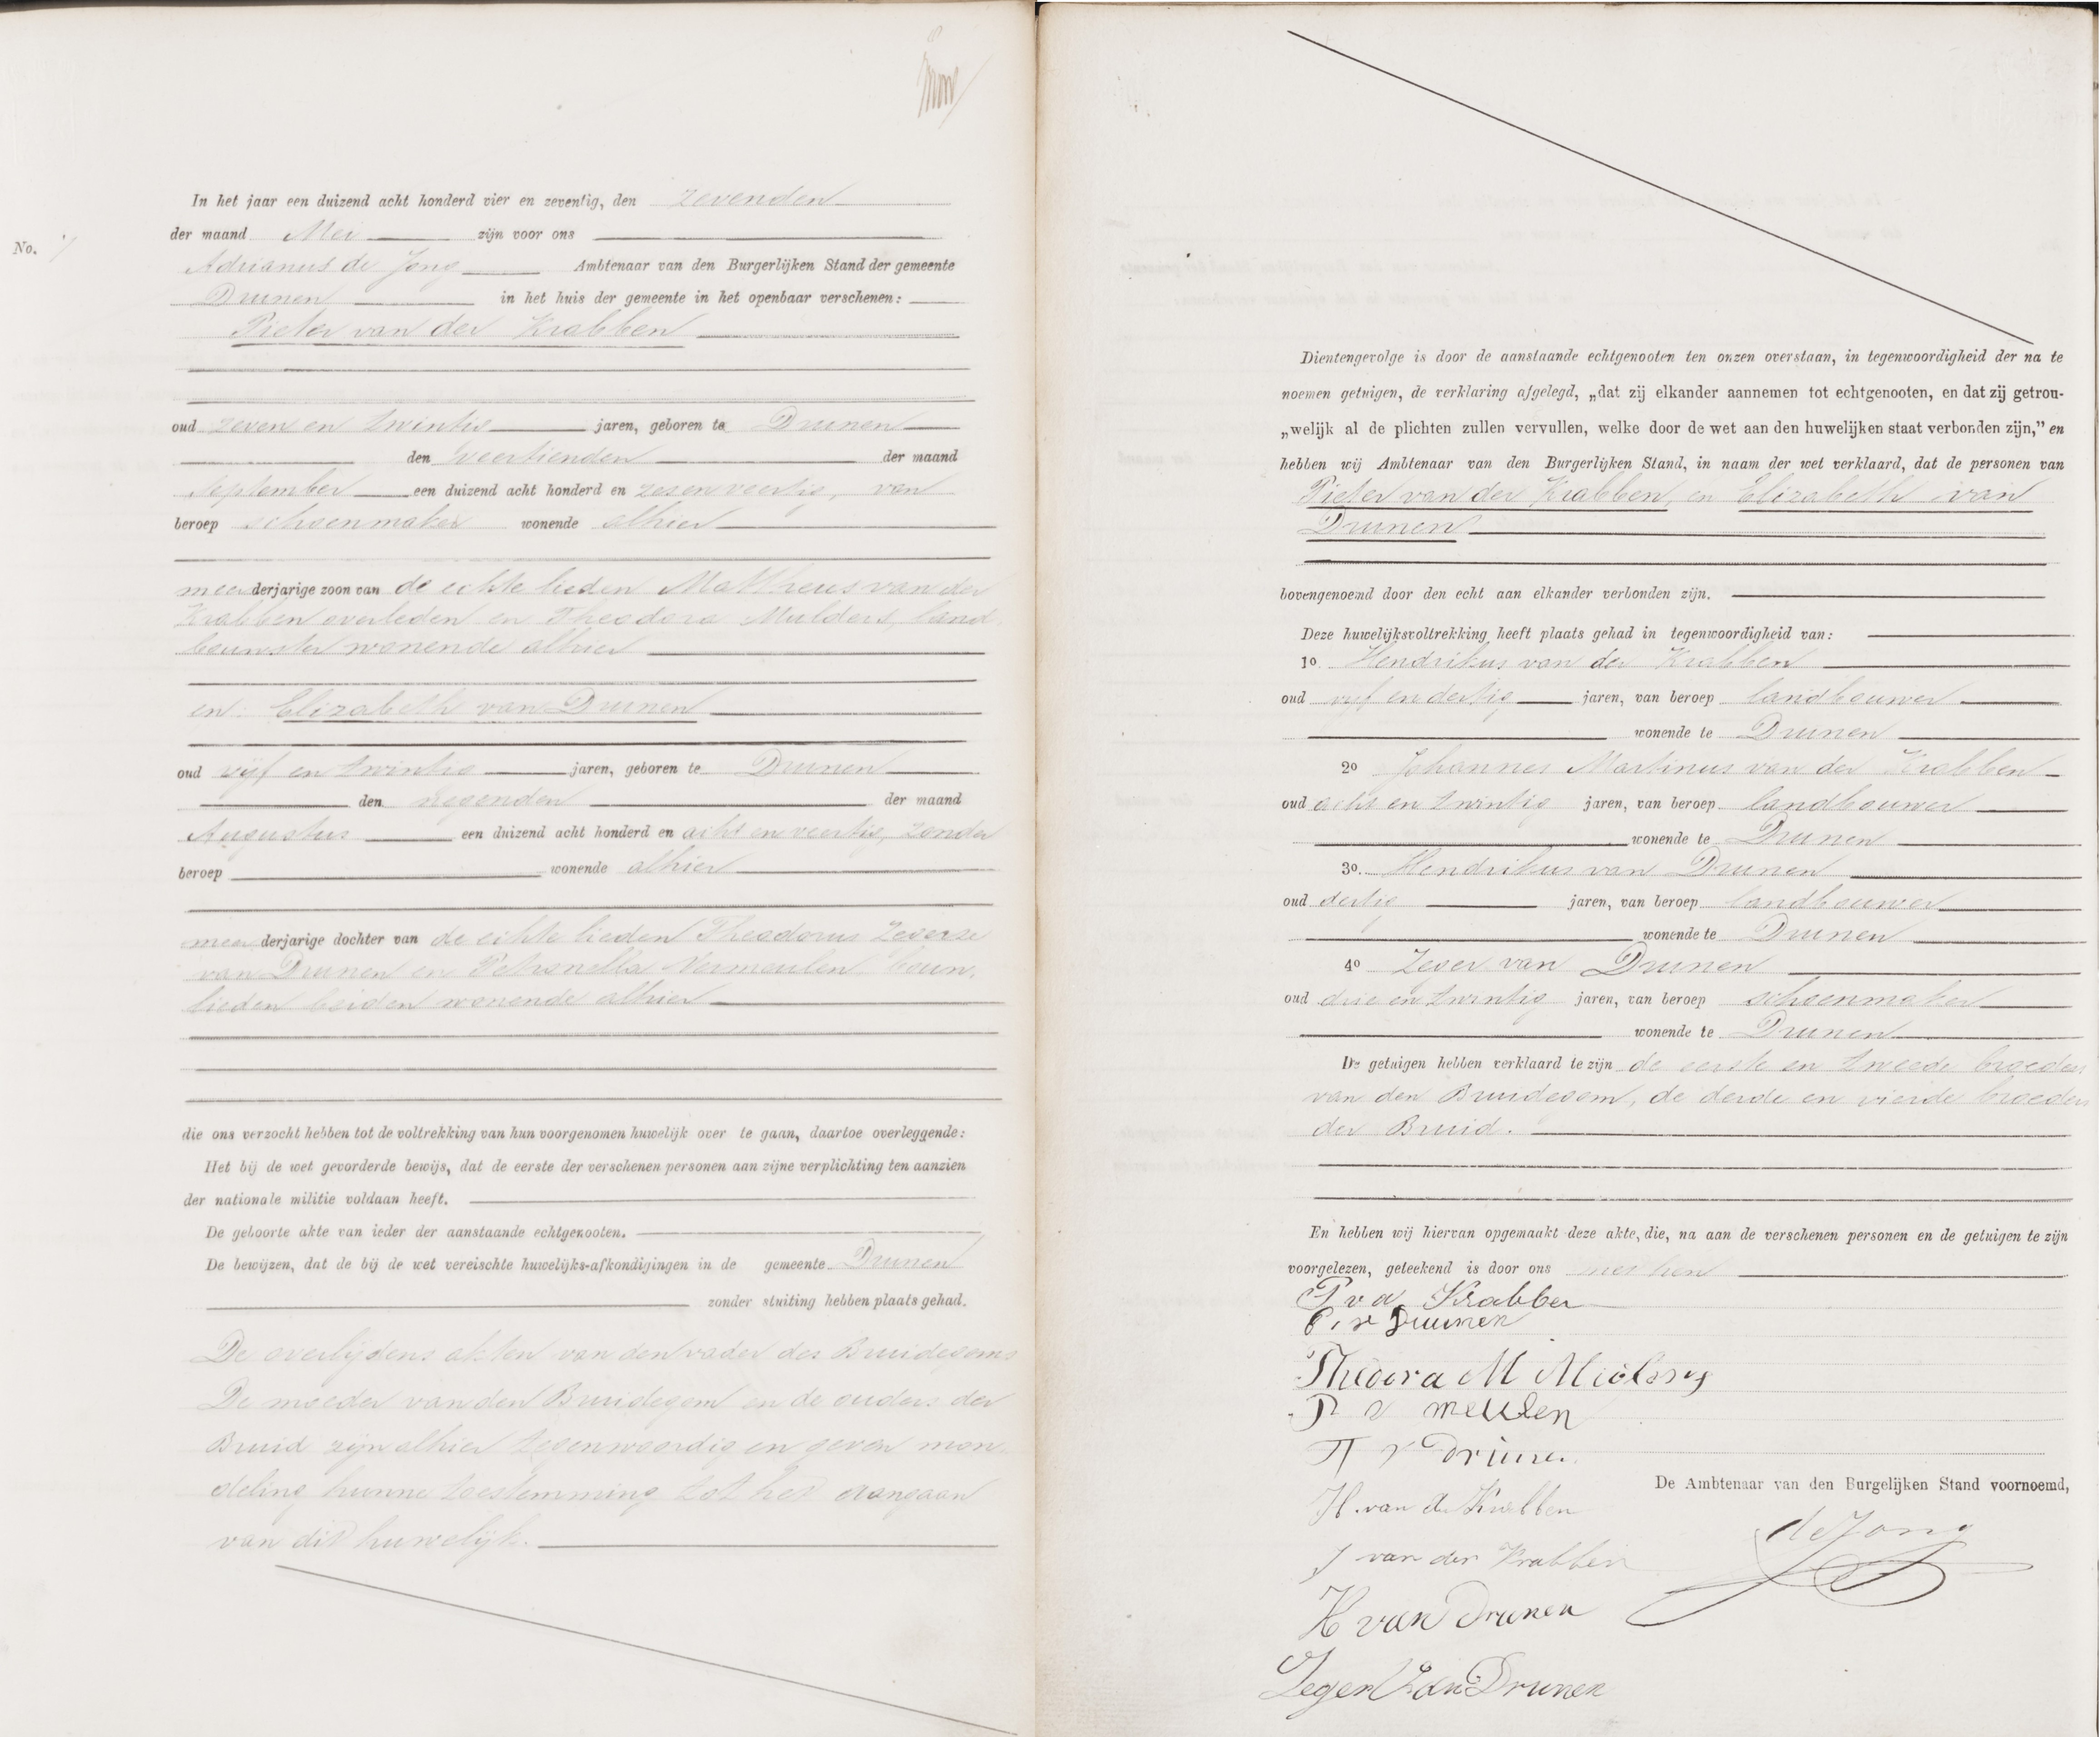 In het jaar een duizend acht honderd vier en zeventig, den zevenden
der maand Mei zijn voor ons
No. 7
Adrianus de Jong Ambtenaar van den Burgerlijken Stand der gemeente
Drunen in het huis der gemeente in het openbaar verschenen:
Pieter van der Krabben
oud zeven en twintig jaren, geboren te Drunen
den veertienden der maand
September een duizend acht honderd en zes en veertig, van
beroep schoenmaker wonende alhier
meerderjarige zoon van de echte lieden Mattheus van der
Krabben overleden en Theodora Mulders, land
bouwster wonende alhier
en Elizabeth van Drunen
oud vijf en twintig jaren, geboren te Drunen
den negenden der maand
Augustus een duizend acht honderd en acht en veertig, zonder
beroep wonende alhier
meerderjarige dochter van de echte lieden Theodorus Zegerse
van Drunen en Petronella Vermeulen bouw,
lieden beiden wonende alhier
die ons verzocht hebben tot de voltrekking van hun voorgenomen huwelijk over te gaan, daartoe overleggende:
Het bij de wet gevorderde bewijs, dat de eerste der verschenen personen aan zijne verplichting ten aanzien
der nationale militie voldaan heeft.
De geboorte akte van ieder der aanstaande echtgenooten.
De bewijzen, dat de bij de wet vereischte huwelijks-afkondigingen in de gemeente Drunen
zonder stuiting hebben plaats gehad.
De overlijdens akten van den vader des Bruidegoms
De moeder van den Bruidegom en de ouders der
Bruid zijn alhier tegenwoordig en geven mon
deling hunne toestemming tot het aangaan
van dit huwelijk.
Dientengevolge is door de aanstaande echtgenooten ten onzen overstaan, in tegenwoordigheid der na te
noemen getuigen, de verklaring afgelegd, „dat zij elkander aannemen tot echtgenooten, en dat zij getrou-
„welijk al de plichten zullen vervullen, welke door de wet aan den huwelijken staat verbonden zijn,” en
hebben wij Ambtenaar van den Burgerlijken Stand, in naam der wet verklaard, dat de personen van
Pieter van der Krabben, en Elizabeth van
Drunen
bovengenoemd door den echt aan elkander verbonden zijn.
Deze huwelijksvoltrekking heeft plaats gehad in tegenwoordigheid van:
1o Hendrikus van der Krabben
oud vijf en dertig jaren, van beroep landbouwer
wonende te Drunen
2o Johannes Martinus van der Krabben
oud acht en twintig jaren, van beroep landbouwer
wonende te Drunen
3o. Hendrikus van Drunen
oud dertig jaren, van beroep landbouwer
wonende te Drunen
4o Zeger van Drunen
oud drie en twintig jaren, van beroep schoenmaker
wonende te Drunen
De getuigen hebben verklaard te zijn de eerste en tweede broeders
van den Bruidegom, de derde en vierde broeders
der Bruid.
En hebben wij hiervan opgemaakt deze akte, die, na aan de verschenen personen en de getuigen te zijn
voorgelezen, geteekend is door ons met hen
P v d Krabben
E. v Drunen
Theodora M
P v meulen
T v Drunen
De Ambtenaar van den Burgelijken Stand voornoemd,
H. van de Krabben
de Jong
J van der Krabben
H van Drunen
Zeger Van Drunen